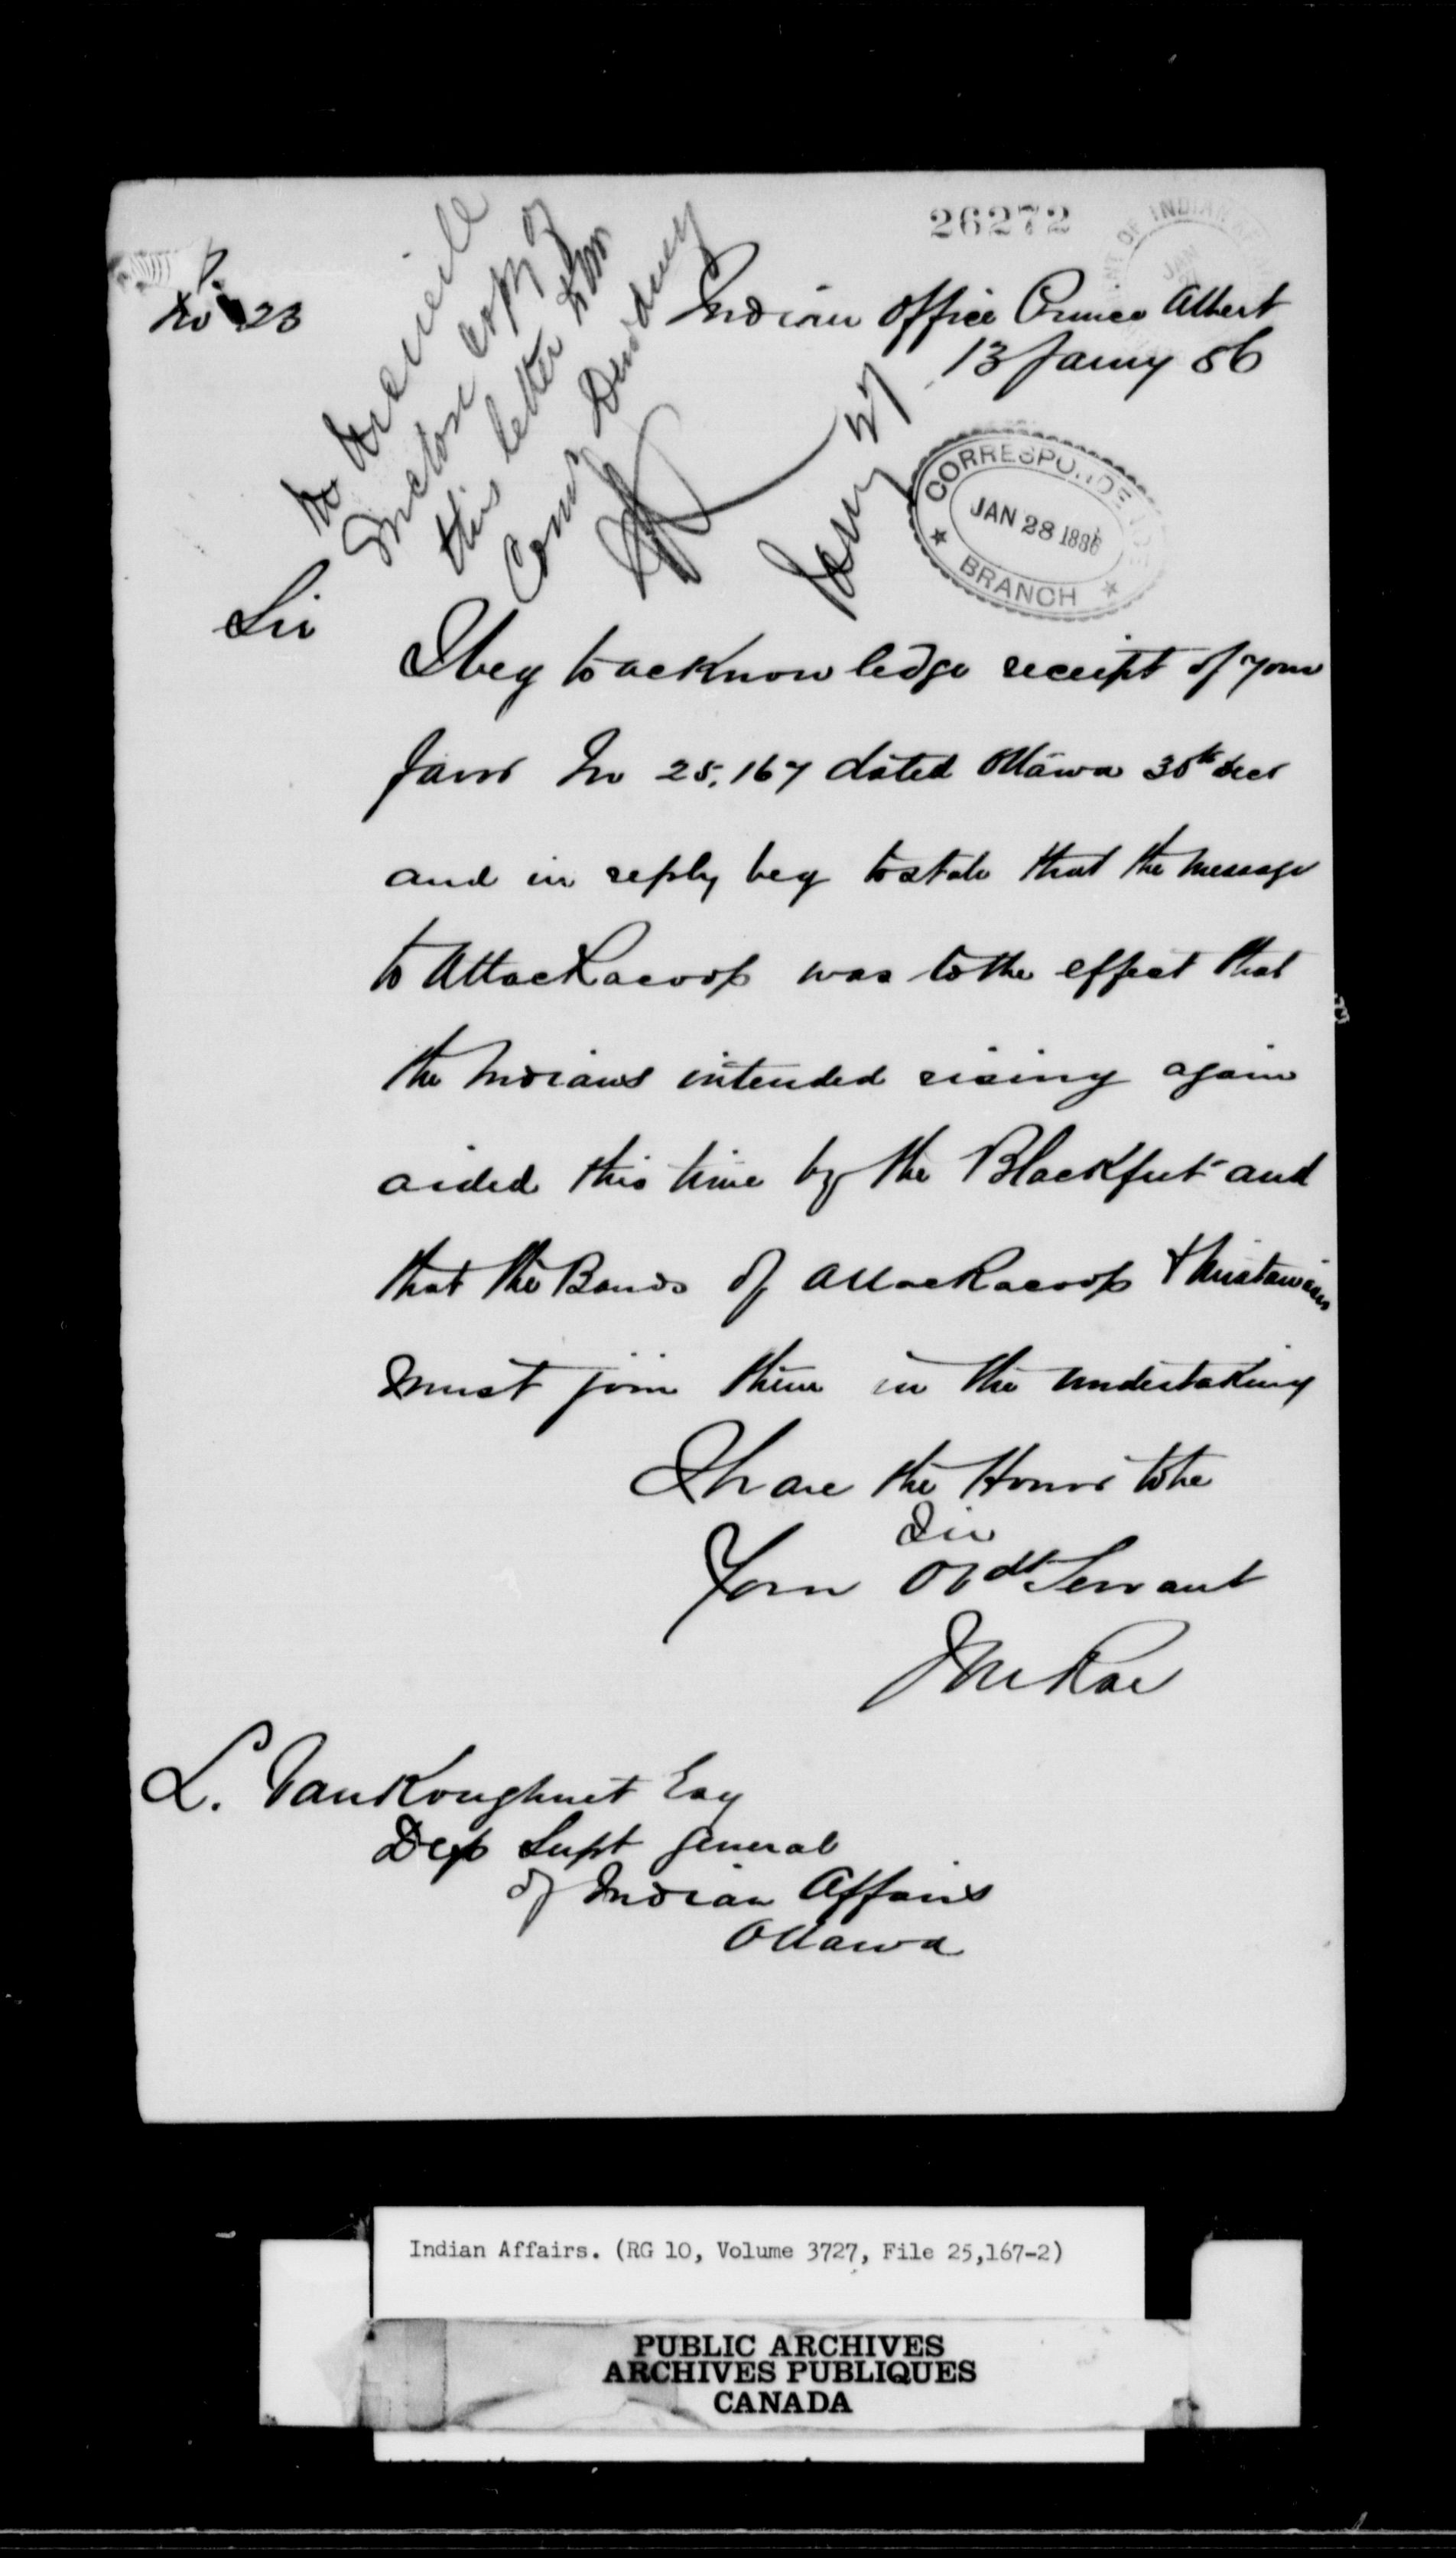 26272
DEPARTMENT OF INDIAN AFFAIRS
JAN
No 23
Indian Office Prince Albert
13 Jany 86
Mr McNeill
Inclose copy of
this letter to
Comr Dewdney
Jany 27
CORRESPONDENCE
JAN 28 1886
BRANCH
Sir
I beg to acknowledge receipt of your
favor No 25,167 dated Ottawa 30th Decr
and in reply beg to state that the message
to Attackacoop was to the effect that
the Indians intended rising again
aided this time by the Blackfeet and
that the Bands of Attackacoop & Mistawasis
must join them in the undertaking
I have the Honor to be
Sir
Your Obdt Servant
J M Rae
L. VanKoughnet Esq
Dep Supt General
of Indian Affairs
Ottawa
Indian Affairs. (RG 10, Volume 3727, File 25,167-2)
PUBLIC ARCHIVES
ARCHIVES PUBLIQUES
CANADA